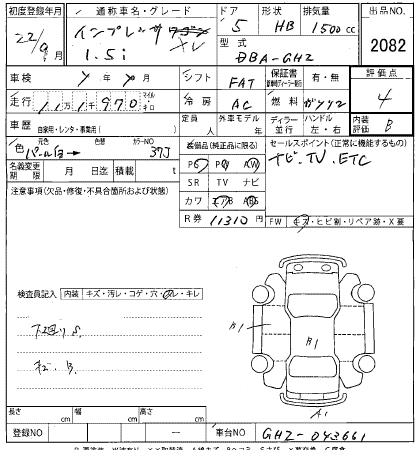 初度登録年月 通称車名・グレード ドア 形状 排気量 出品NO.
22/9 月 インプレッサ 5 HB 1500cc 2082
1.5i 型式 DBA-GH2
車検 年 月 シフト FAT 保証書 有・無 評価点
走行 マイル キロ 冷房 AC 燃料 ガソリン 4
車歴 自家用・レンタ・事業用( ) 定員 人 外車モデル ディーラー 並行 ハンドル 左・右 内装評価 B
色 元色 パール白 色替 カラーNO 37J 装備品(純正品に限る) セールスポイント(正常に機能するもの)
名義変更期限 月 日迄 積載 t PS PW AW ナビ、TV、ETC
注意事項(欠品・修復・不具合箇所および状態) SR TV ナビ
カワ エアB ABS
R券 11310円 FW キズ・ヒビ割・リペア跡・X要
検査員記入 内装 キズ・汚レ・コゲ・穴・スレ・キレ
下廻りS
キズ、B
A1 B1 A1
長さ cm 幅 cm 高さ cm
登録NO 車台NO GH2-043661